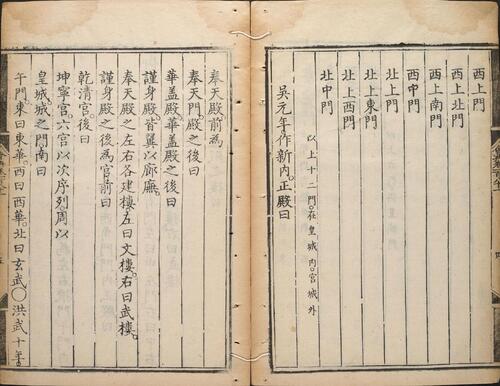 西上門
西上北門
西上南門
西中門
北上門
北上東門
北上西門
北中門
以上十二門。在皇城內。宮城外
吳元年作新內。正殿曰
奉天殿前為
奉天門。殿之後曰
華蓋殿華蓋殿之後曰
謹身殿。皆翼以廊廡。
奉天殿之左右各建樓左曰文樓。右曰武樓。
謹身殿之後為宮前曰
乾清宮。後曰
坤寧宮六宮以次序列周以
皇城。城之門南曰
午門。東曰東華。西曰西華。北曰玄武。〇洪武十年。